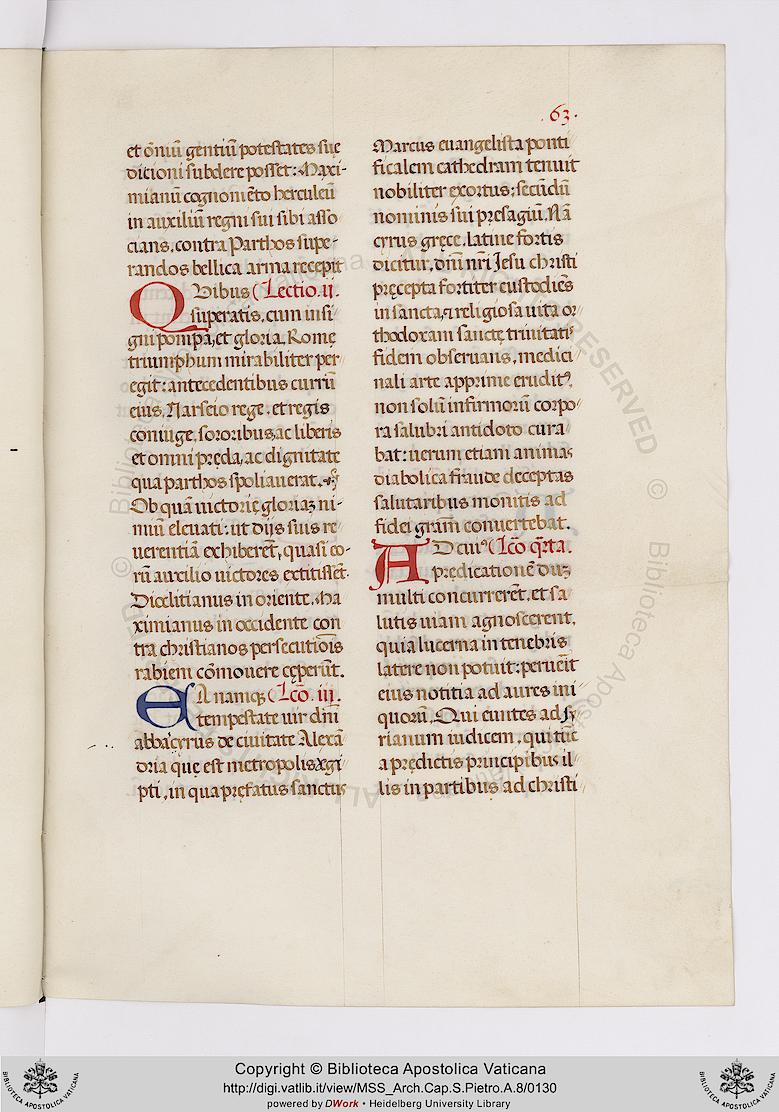 .63.
et õniũ gentiũ potestates suę
dicioni subdere posset: Maxi-
mianũ cognomẽto herculeũ
in auxiliũ regni sui sibi asso
cians, contra Parthos supe-
randos bellica arma recepit
QVibus (Lectio.ii.
superatis, cum insi
gni pompa, et gloria, Romę
triumphum mirabiliter per
egit: antecedentibus currũ
eius, Narseio rege, et regis
coniuge, sororibus, ac liberis
et omni pręda, ac dignitate
qua parthos spoliauerat.
Ob quã uictorię gloriaȝ ni-
miũ eleuati: ut dijs suis re
uerentiã exhiberẽt, quasi eo-
rũ auxilio uictores extitissẽt.
Dioclitianus in oriente, Ma
ximianus in occidente con
tra christianos persecutiõis
rabiem cõmouere cęperũt.
EA namqȝ (Lcõ. iij.
tempestate uir dñi
abbacyrus de ciuitate Alexã
dria quę est metropolis ęgi
pti, in qua pręfatus sanctus
Marcus euangelista ponti
ficalem cathedram tenuit
nobiliter exortus: secũdũ
nominis sui presagiũ. Nã
cyrus gręce, latine fortis
dicitur, dñi nr̃i Jesu christi
pręcepta fortiter custodiẽs
in sancta, ⁊ religiosa uita or
thodoxam sanctę trinitatis
fidem obseruans, medici
nali arte apprime eruditꝰ,
non solũ infirmorũ corpo
ra salubri antidoto cura
bat: uerum etiam animas
diabolica fraude deceptas
salutaribus monitis ad
fidei gr̃am conuertebat.
AD cuiꝰ (Lcõ qr̃ta.
predicationẽ duȝ
multi concurrerẽt, et sa
lutis uiam agnoscerent,
quia lucerna in tenebris
latere non potuit: peruẽit
eius notitia ad aures ini
quorũ. Qui euntes ad sy
rianum iudicem, qui tũc
a predictis principibus il
lis in partibus ad christi
Copyright © Biblioteca Apostolica Vaticana
http://digi.vatlib.it/view/MSS_Arch.Cap.S.Pietro.A.8/0130
powered by DWork • Heidelberg University Library
BIBLIOTECA APOSTOLICA VATICANA
BIBLIOTECA APOSTOLICA VATICANA